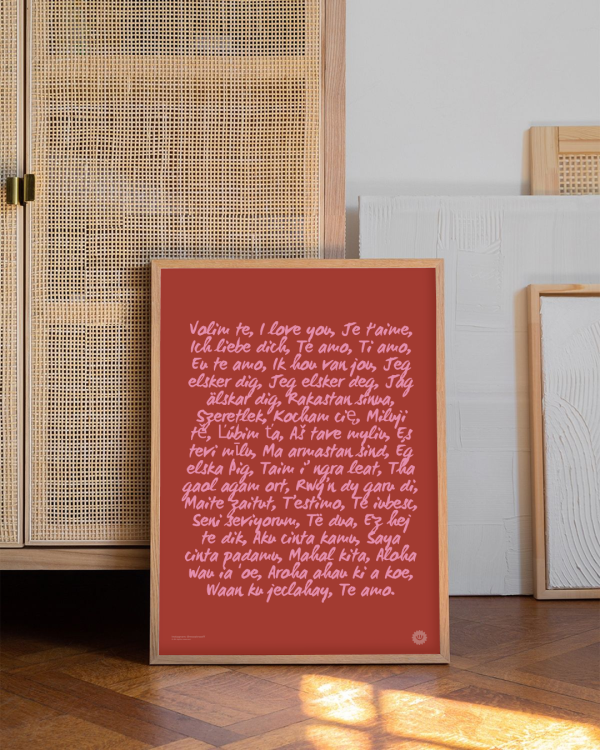 Volim te, I love you, Je t'aime,
Ich liebe dich, Te amo, Ti amo,
Eu te amo, Ik hou van jou, Jeg
elsker dig, Jeg elsker deg, Jag
älskar dig, Rakastan sinua,
Szeretlek, Kocham cię, Miluji
tě, Ľúbim ťa, Aš tave myliu, Es
tevi mīlu, Ma armastan sind, Ég
elska þig, Taim i' ngra leat, Tha
gaol agam ort, Rwy'n dy garu di,
Maite zaitut, T'estimo, Te iubesc,
Seni seviyorum, Të dua, Ez hej
te dik, Aku cinta kamu, Saya
cinta padamu, Mahal kita, Aloha
wau ia 'oe, Aroha ahau ki a koe,
Waan ku jeclahay, Te amo.